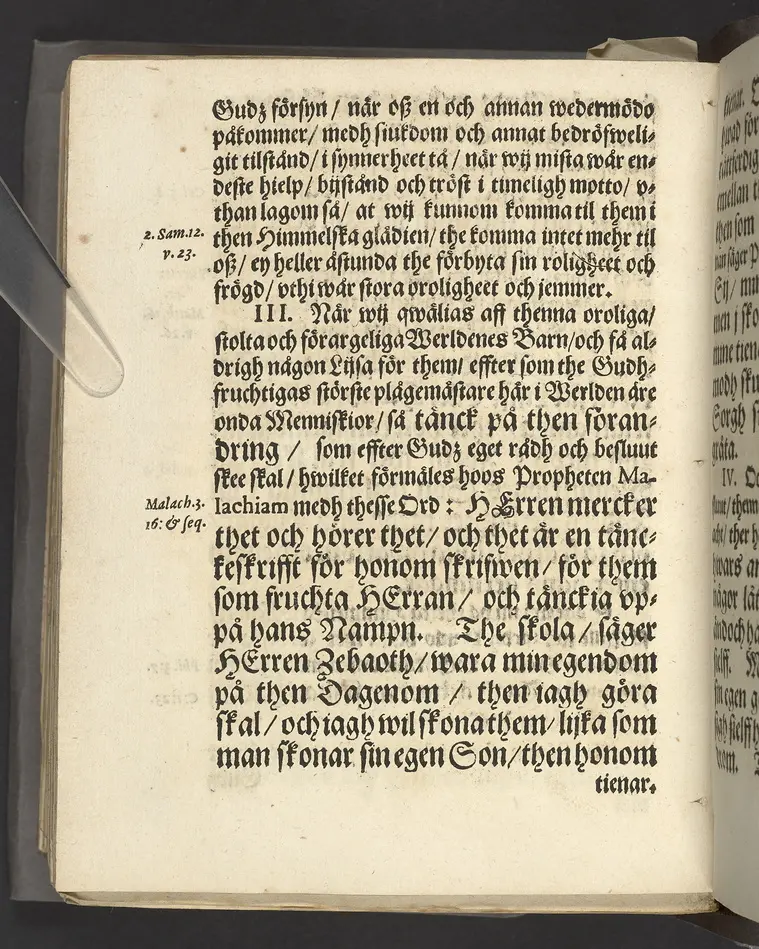 Gudz försyn / när oß en och annan wedermödo
påkommer / medh siukdom och annat bedröfweli-
git tilstånd / i synnerheet tå / när wij mista wår en-
deste hielp / bijstånd och tröst i timeligh motto / v-
than lagom så / at wij kunnom komma til them i
2. Sam. 12.
v. 23.
then Himmelska glädien / the komma intet mehr til
oß / ey heller åstunda the förbyta sin roligheet och
frögd / vthi wår stora oroligheet och jemmer.
III. När wij qwälias aff thenna oroliga /
stolta och förargeliga Werldenes Barn / och få al-
drigh någon Lijsa för them / effter som the Gudh-
fruchtigas störste plågemästare här i Werlden äre
onda Menniskior / så tänck på then föran-
dring / som effter Gudz eget rådh och besluut
skee skal / hwilket förmäles hoos Propheten Ma-
Malach. 3.
16: & seq.
lachiam medh thesse Ord : HErren mercker
thet och hörer thet / och thet är en tänc-
keskrifft för honom skrifwen / för them
som fruchta HErran / och tänckia vp-
på hans Nampn. The skola / säger
HErren Zebaoth / wara min egendom
på then Dagenom / then iagh göra
skal / och iagh wil skona them / lijka som
man skonar sin egen Son / then honom
tienar.